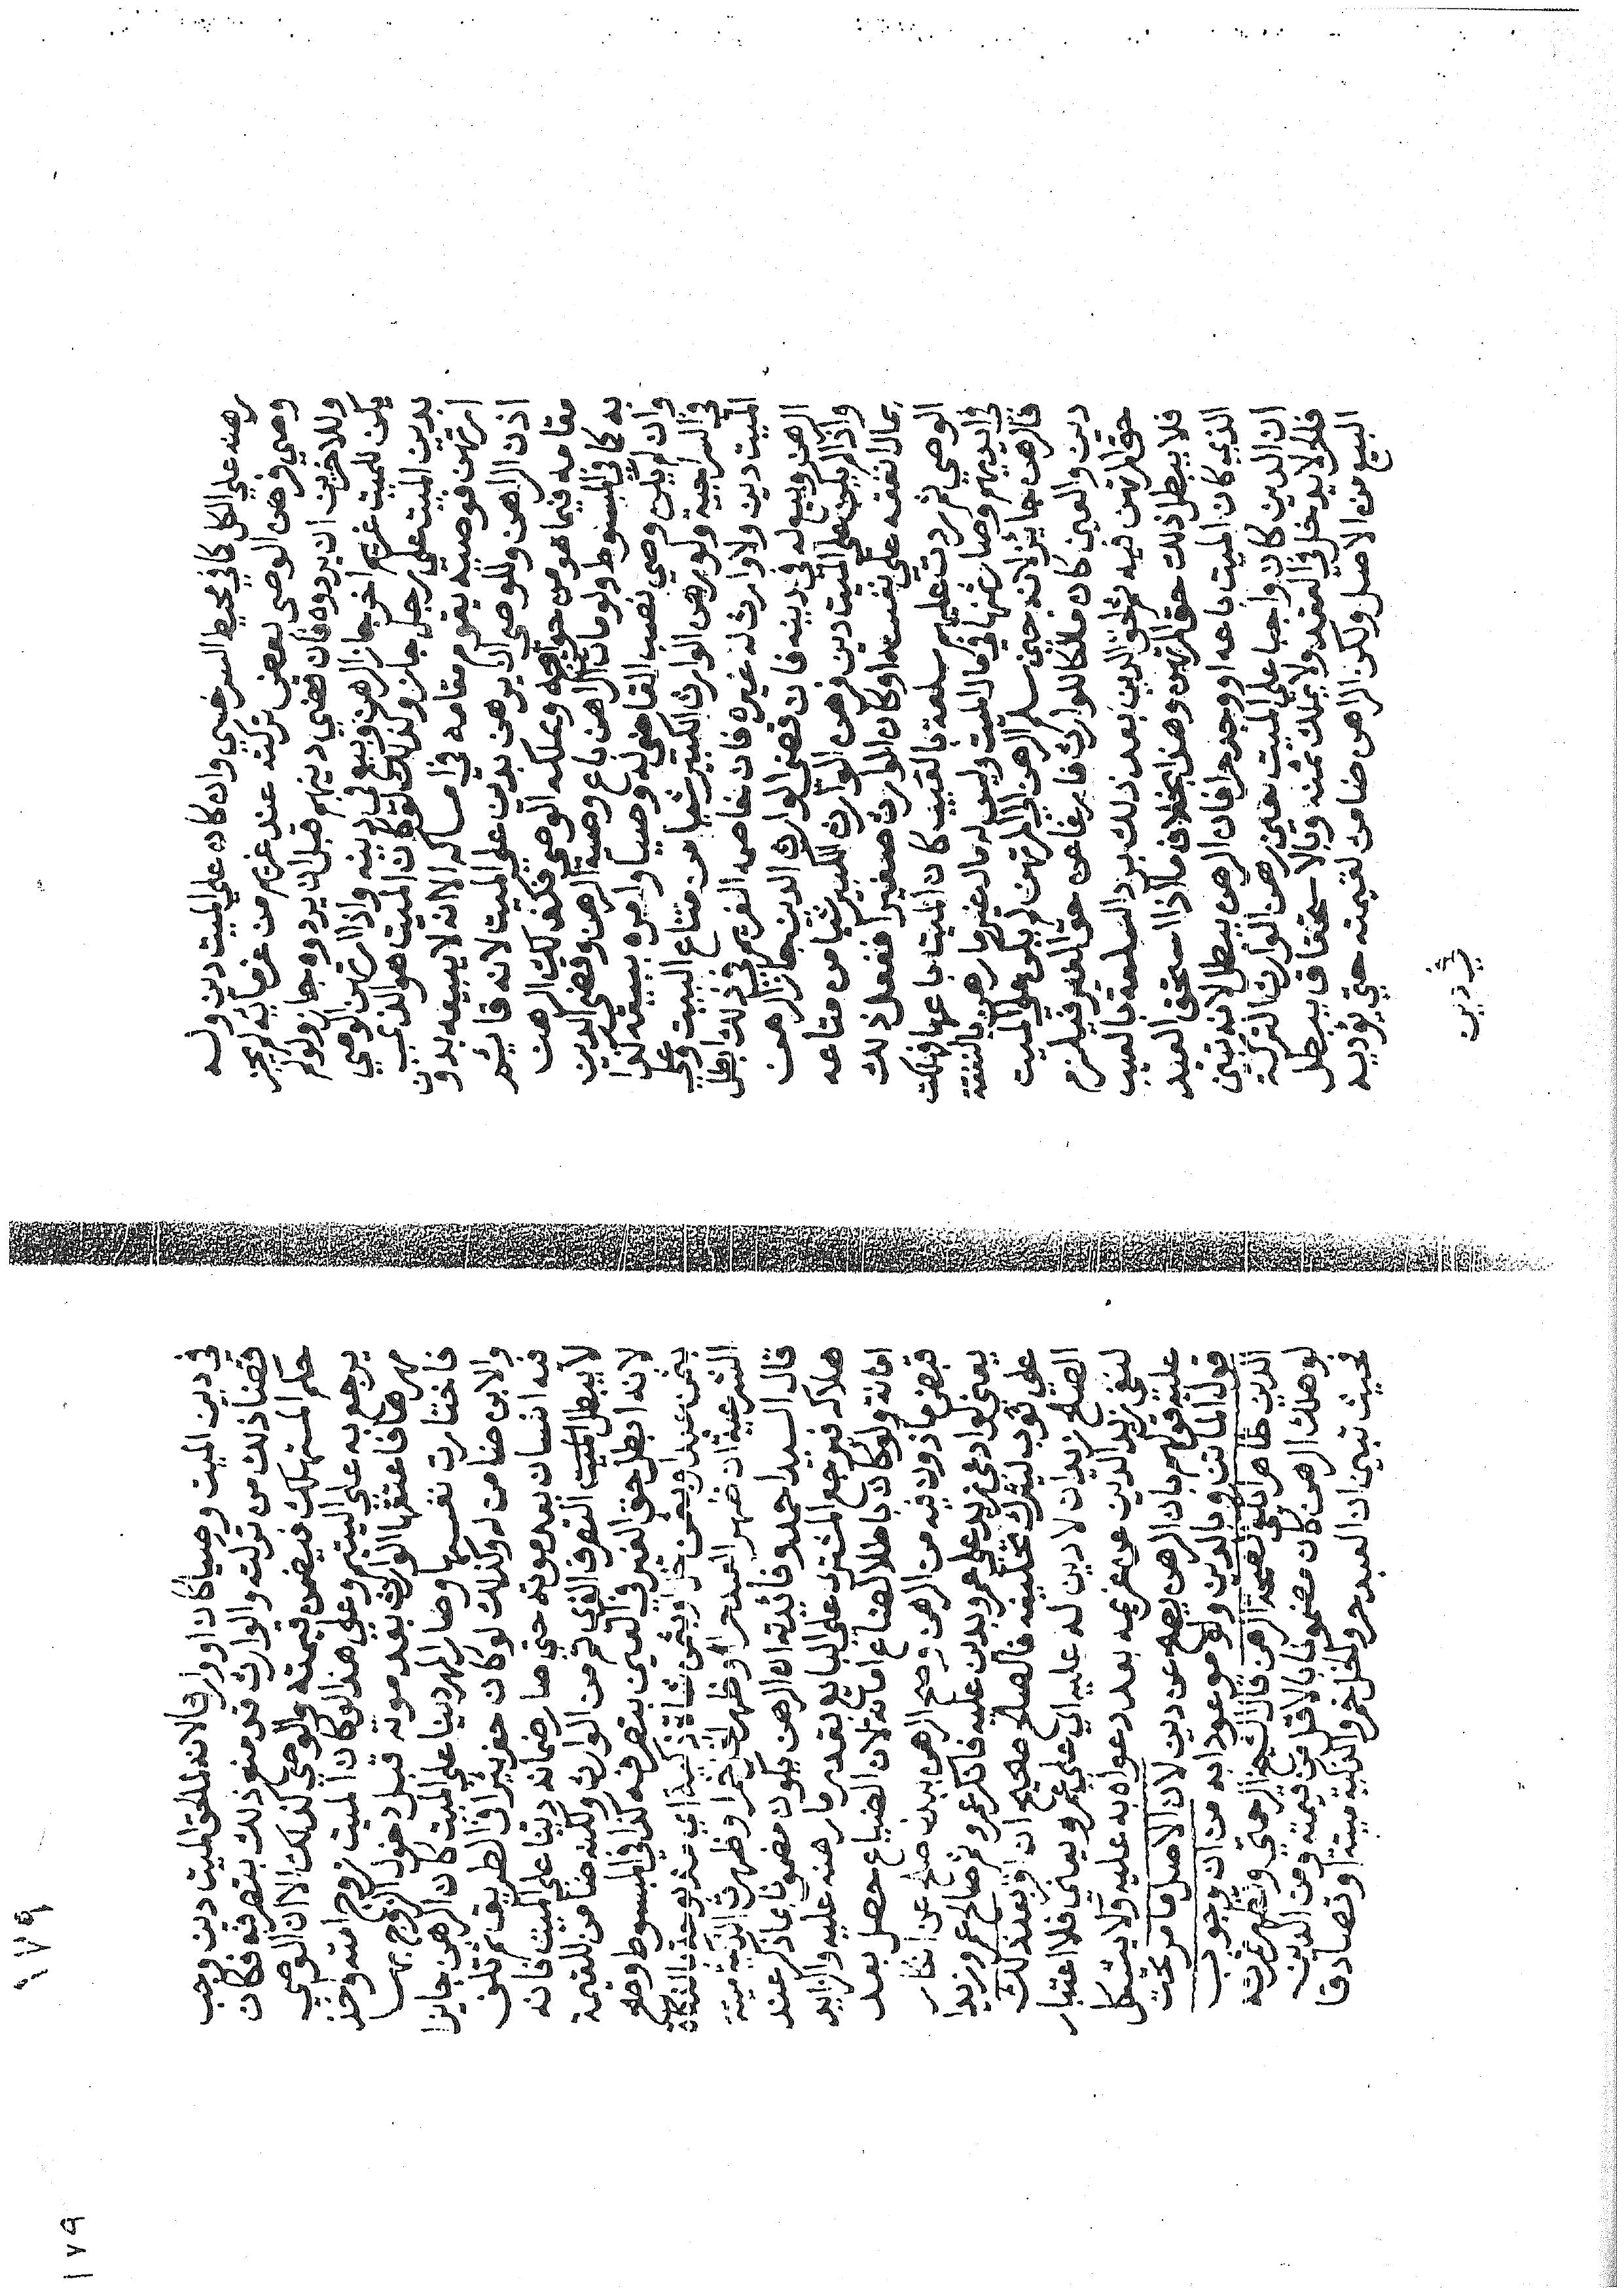 رهنه علي الكل كما في محيط السرخسي وان كان علي الميت دين وله
وصي فرهن الوصي بعض تركته عند غريم من غرمائه لم يجز
وللاخرين ان يردوه فان قضي دينهم قبل ان يردوه جاز ولو لم
يكن للميت غريم اخر جاز الرهن وبيع في دينه واذا ارتهن الوصي
بدين الميت علي رجل جاز وكذلك لو كان الميت هو الذي
ارتهن فوصيه يقوم مقامه في امساكه الا انه لا يبيعه بدون
اذن الراهن وللوصي ان يرهن بدين علي الميت لانه قائم
مقامه فيما هو من حوائجه الوصي فكذلك الرهن
به كما في المبسوط ولو مات الراهن باع وصيه الرهن وقضي الدين
وان لم يكن وصي نصب القاضي له وصيا وامره ببيعه كذا
في السراجية ولو رهن الوارث الكبير شيا من متاع الميت وعلي
الميت دين ولا وارث له غيره فان خاصمه الغريم في ذلك ابطل
الرهن وبيع له في دينه فان قضي الوارث الدين جاز الرهن
واذا لم يكن علي الميت دين فرهن الوارث الكبير شيا من متاعه
بمال انفقه علي نفسه او كان الوارث صغيرا ففعل ذلك
الوصي ثم ردت عليهم سلعة بالعيب كان الميت باعها فهلكت
في ايديهم وصار ثمنها في مال الميت وليس له مال غير ما رهن بالنفقة
فالرهن جايز لانه حين سلم الرهن الي المرتهن لم يكن علي الميت
دين والعين كان ملكا للوارث فارغا عن حق الغير فيلزم
حق المرتهن فيه ثم لحق الدين بعد ذلك برد السلعة بالعيب
فلا يبطل ذلك حق المرتهن وهذا بخلاف ما اذا استحق العبد
الذي كان الميت باعه او وجد حرا فان الرهن يبطل لانه تبين
ان الدين كان واجبا علي الميت حين رهن الوارث التركة
فالحر لا يدخل في العقد ولا يملك ثمنه وبالاستحقاق يبطل
البيع من الاصل ولكن الراهن ضامن لقيمته حتي يؤديه
في دين
١٧٩
في دين الميت وصيا كان او وارثا لانه لحق الميت دين وجب
قضا ذلك من تركته والوارث قد منع ذلك بتصرفه فكان
حكم المستهلك فيضمن قيمته والوصي كذلك الا ان الوصي
يرجع به علي اليتيم وعلي هذا لو كان الميت زوج امته واخذ
مهرها فاعتقها الوارث بعد موته قبل دخول الزوج بها
فاختارت نفسها وصار المهر دينا علي الميت كان الرهن جايزا
والابن ضامن له وكذلك لو كان حفر بئرا في الطريق ثم تلف
فيه انسان بعد موته حتي صار ضمانه دينا علي الميت فانه
لا يبطل التصرف الذي تم من الوارث ولكنه ضامن للقيمة
لانه ابطل حق الغير في العين بتصرفه كذا في المبسوط وصح
بثمن عبد او بثمن خل او بثمن شاة ذكية اي مذبوحة بالذكاة
الشرعية ان ظهر العبد حرا وظهر الخل خمرا وظهرت الذكية ميتة
قال السيد احمد وفائدته ان الرهن يكون مضمونا بما ذكر عند
هلاكه فيرجع المشتري علي البايع بقدر ما رهنه عليه والزايد
امانة ولو كان باطلا لضاع امانة لان الضياع حصل بعد
قبض ماذون فيه من الراهن وصح الرهن ببدل صلح عن انكار
يعني لو ادعي زيد علي عمرو بدين عليه فانكر عمرو ثم صالح عمرو زيدا
علي ثوب ليترك تحليفه فالصلح صحيح ان اقر بعد ذلك
الصلح زيد ان لا دين له عليه اي علي عمرو يعني فلا اعتبار
لنفي زيد الدين عن غريمه بعد دعواه به عليه ولا يشكل
عليه قولهم بان الرهن يصح عن دين لان الاصل ما مر تحت
قول الماتن وبالدين ولو موعودا به من ان وجوب
الدين ظاهرا يكفي لصحة الرهن قال الشيخ الرحمتي وتظهر ثمرته
لو هلك الرهن كان مضمونا بالاقل من قيمته ومن الدين
بحيث تبين ان العبد حر والخل خمر والذكية ميتة او تصادقا
١٧٩